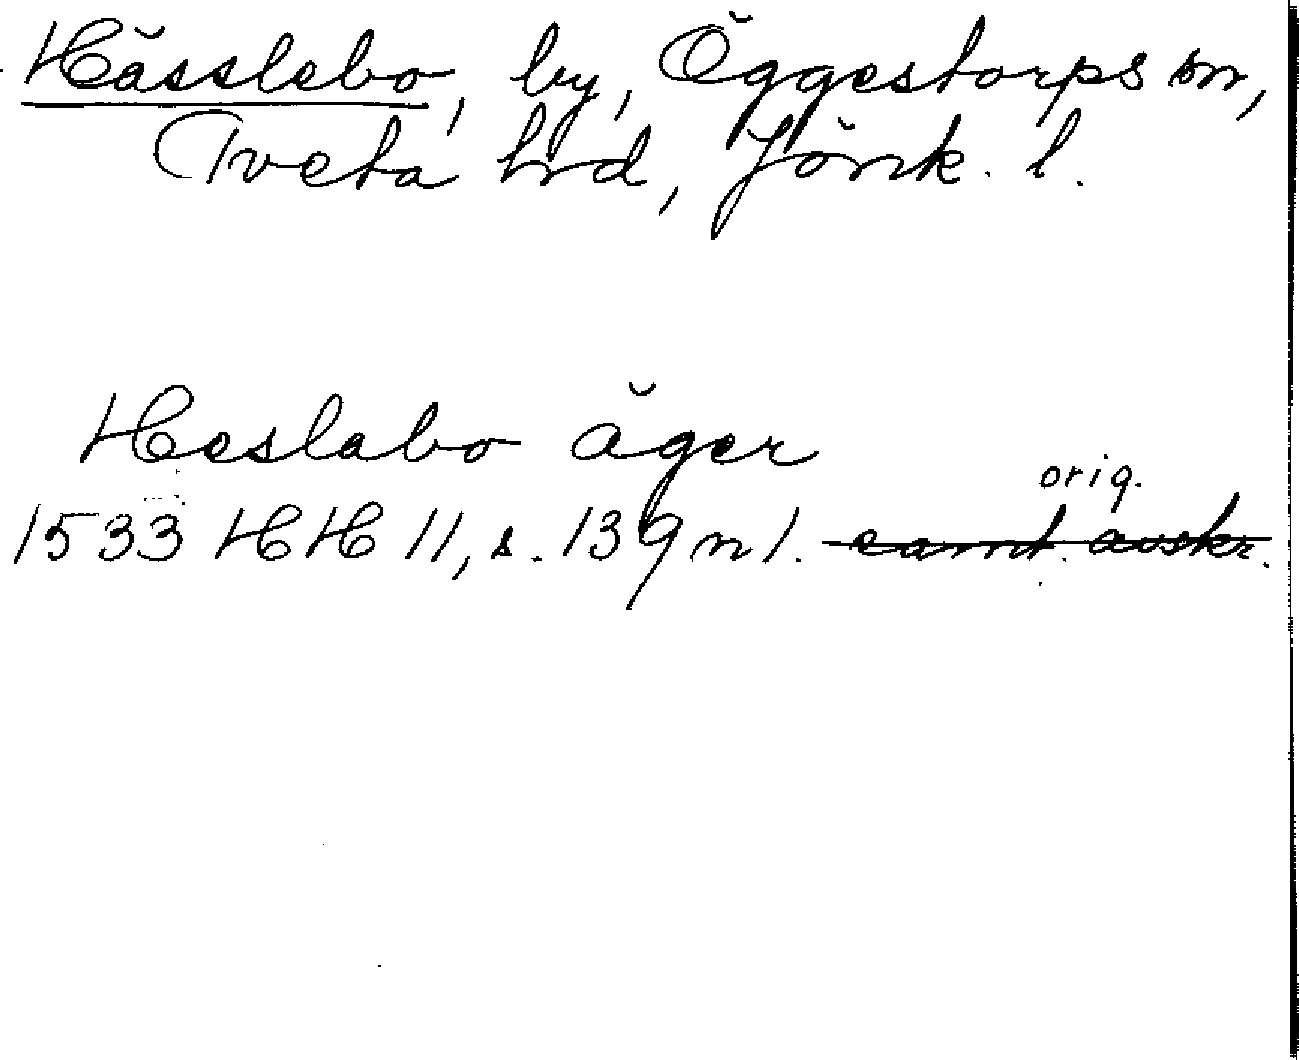 Hässlebo, by, Öggestorps sn,
Tveta hrd, Jönk. l.
Heslabo äger
orig.
1533 HH 11, s. 139 n 1. samt. avskr.